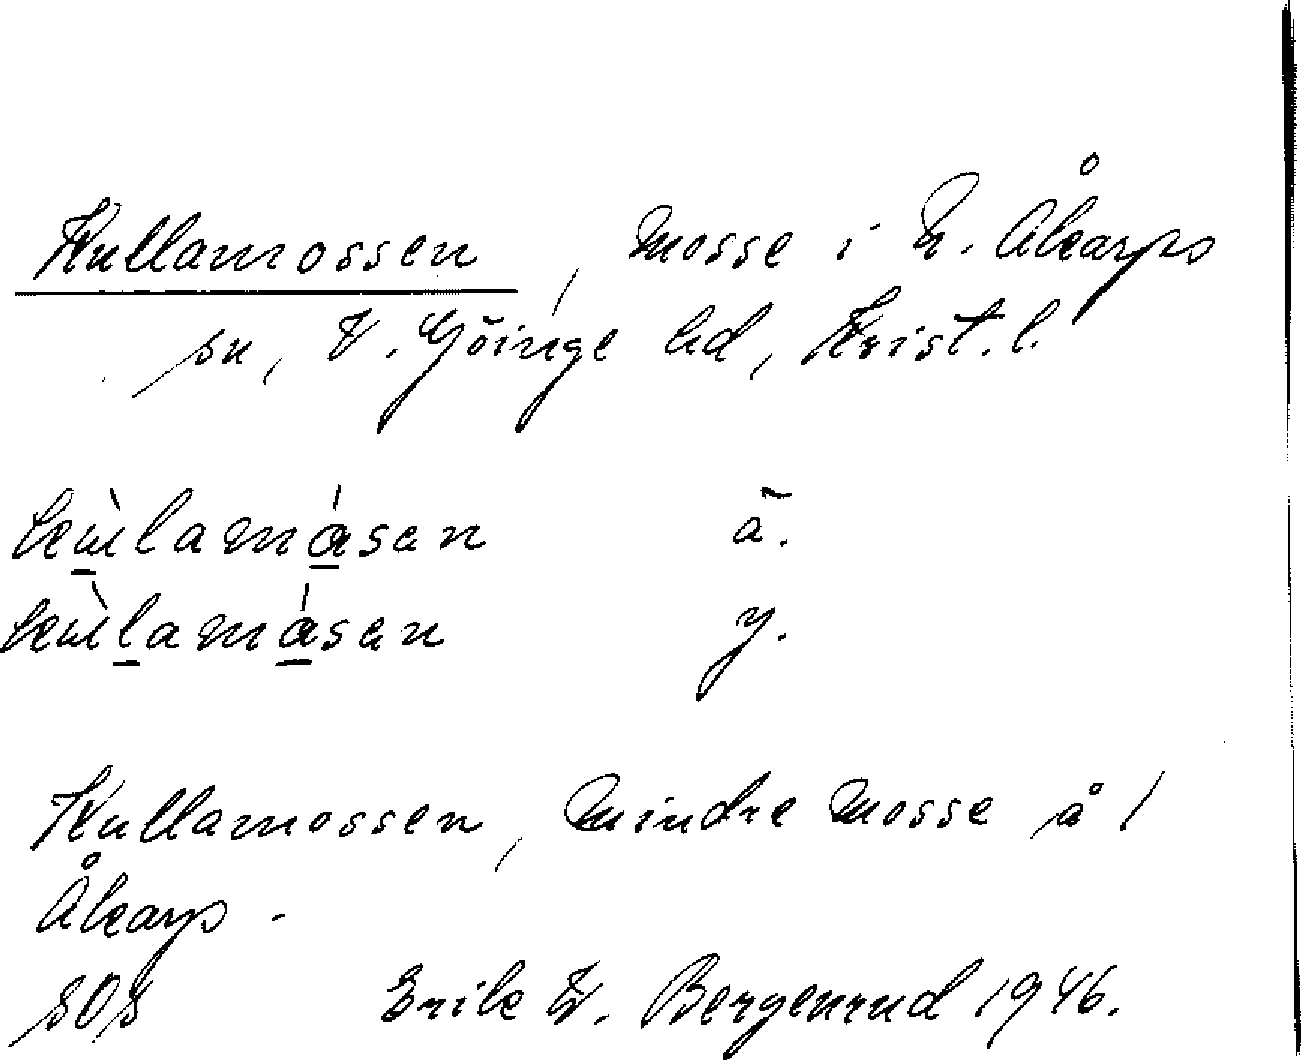 Kullamossen, mosse i N. Åkarps
sn, V. Göinge hd, Krist. l.
kùlamåsan ä.
kùlamåsan y.
Kullamossen, mindre mosse å 1
Åkarp -
SOS Erik W. Bergenrud 1946.